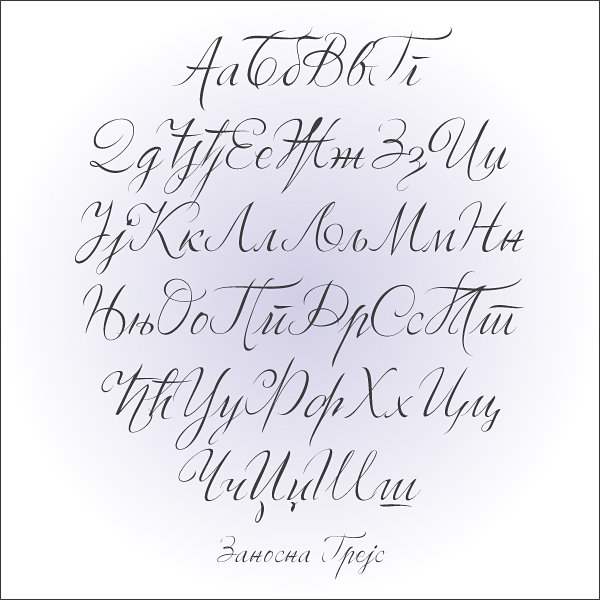 АаБбВвГг
ДдЂђЕеЖжЗзИи
ЈјКкЛлЉљМмНн
ЊњОоПпРрСсТт
ЋћУуФфХхЦц
ЧчЏџШш
Заносна Грејс